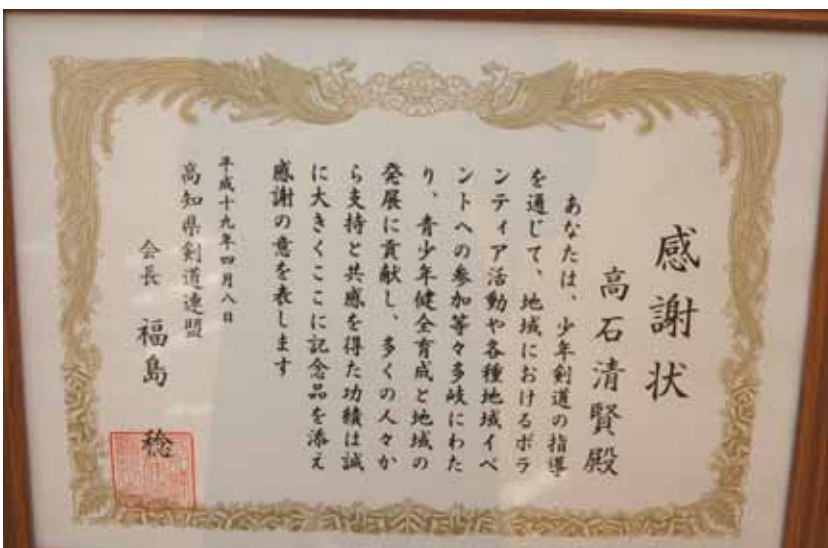 感謝状
高石清賢殿
あなたは、少年剣道の指導
を通じて、地域におけるボラ
ンティア活動や各種地域イベ
ントへの参加等々多岐にわた
り、青少年健全育成と地域の
発展に貢献し、多くの人々か
ら支持と共感を得た功績は誠
に大きくここに記念品を添え
感謝の意を表します
平成十九年四月八日
高知県剣道連盟
会長 福島 稔